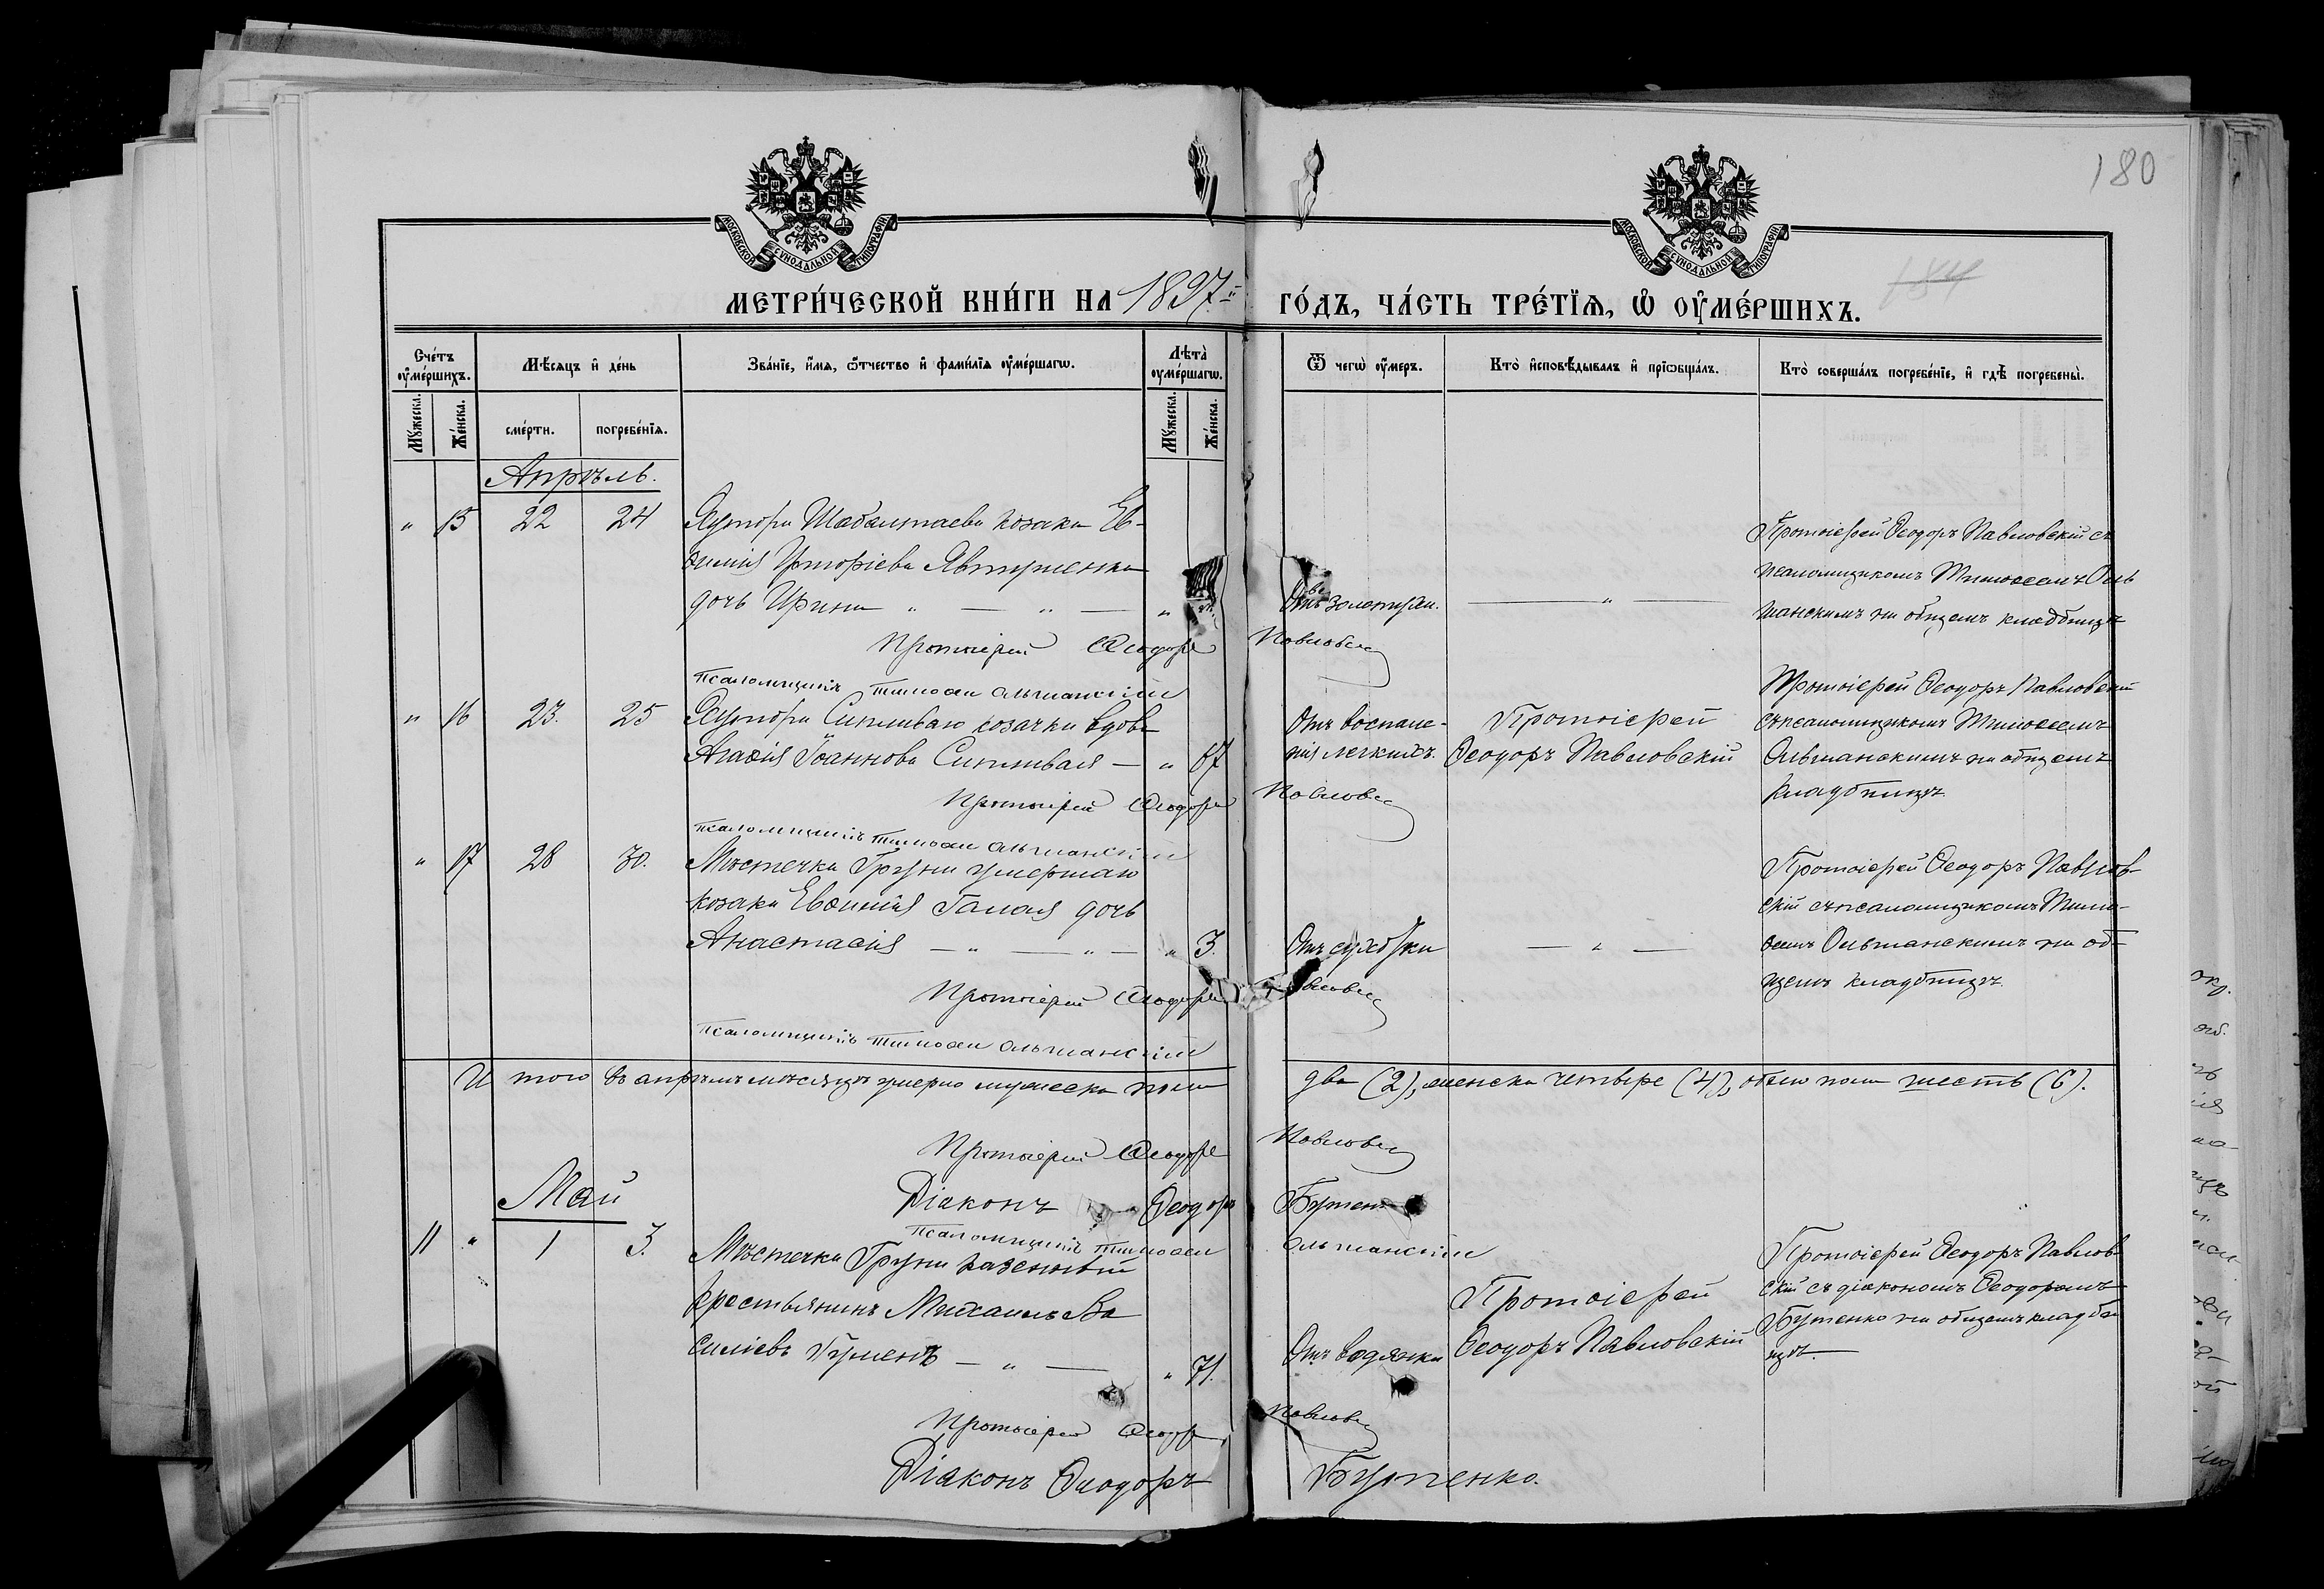 180
МОСКОВСКОЙ СѴНОДАЛЬНОЙ ТИПОГРАФІИ
МОСКОВСКОЙ СѴНОДАЛЬНОЙ ТИПОГРАФІИ
МЕТРИ́ЧЕСКОЙ КНИ́ГИ НА 1897 ГО́ДЪ, ЧА́СТЬ ТРЕ́ТЇѦ, Ѡ ОУМЕ́РШИХЪ.
Сче́тъ оуме́ршихъ.
Мѣ́сѧцъ и де́нь
Зва́нїе, и́мѧ, ѻ́тчество и фами́лїѧ оуме́ршагѡ.
Лѣта̀ оуме́ршагѡ.
Ѿ чегѡ̀ оу́меръ.
Кто̀ и҆сповѣ́дывалъ и҆ прїѡбща́лъ.
Кто̀ соверша́лъ погребе́нїе, и҆ гдѣ̀ погребены̀.
Му́жеска.
Же́нска.
сме́рти.
погребе́нїѧ.
Му́жеска.
Же́нска.
Апрѣль.
" 15 22 24 Хутора козака Ев-
ѳимія дочь Ирина " — " — "
Отъ
— " —
Протоіерей Ѳеодоръ Павловскій съ
псаломщикомъ Тимоѳеемъ Оль
шанскимъ на общемъ кладбищѣ
Протоіерей Ѳеодоръ Павловскій
Псаломщикъ Тимоѳей Ольшанскій
" 16 23. 25 Хутора козачка вдова
Агаѳія Іоаннова — " 67
Отъ воспале-
нія легкихъ.
Протоіерей
Ѳеодоръ Павловскій
Протоіерей Ѳеодоръ Павловскій
съ псаломщикомъ Тимоѳеемъ
Ольшанскимъ на общемъ
кладбищѣ
Протоіерей Ѳеодоръ Павловскій
Псаломщикъ Тимоѳей Ольшанскій
" 17 28 30. Мѣстечка Груни умершаго
козака Евѳимія Галая дочь
Анастасія — " — " — " 3.
Отъ сухотки
— " —
Протоіерей Ѳеодоръ Павлов-
скій съ псаломщикомъ Тимо-
ѳеемъ Ольшанскимъ на об-
щемъ кладбищѣ
Протоіерей Ѳеодоръ Павловскій
Псаломщикъ Тимоѳей Ольшанскій
И того въ апрѣлѣ мѣсяцѣ умерло мужеска пола два (2), женска четыре (4), обоего пола шесть (6).
Протоіерей Ѳеодоръ Павловскій
Діаконъ Ѳеодоръ Бутенко
Псаломщикъ Тимоѳей Ольшанскій
Май
11 " 1 3. Мѣстечка Груни казенный
крестьянинъ Михаилъ Ва
силіевъ — " — " 71.
Отъ водянки
Протоіерей
Ѳеодоръ Павловскій
Протоіерей Ѳеодоръ Павлов
скій съ діакономъ Ѳеодоромъ
Бутенко на общемъ кладби
щѣ.—
Протоіерей Ѳеодоръ Павловскій
Діаконъ Ѳеодоръ Бутенко.